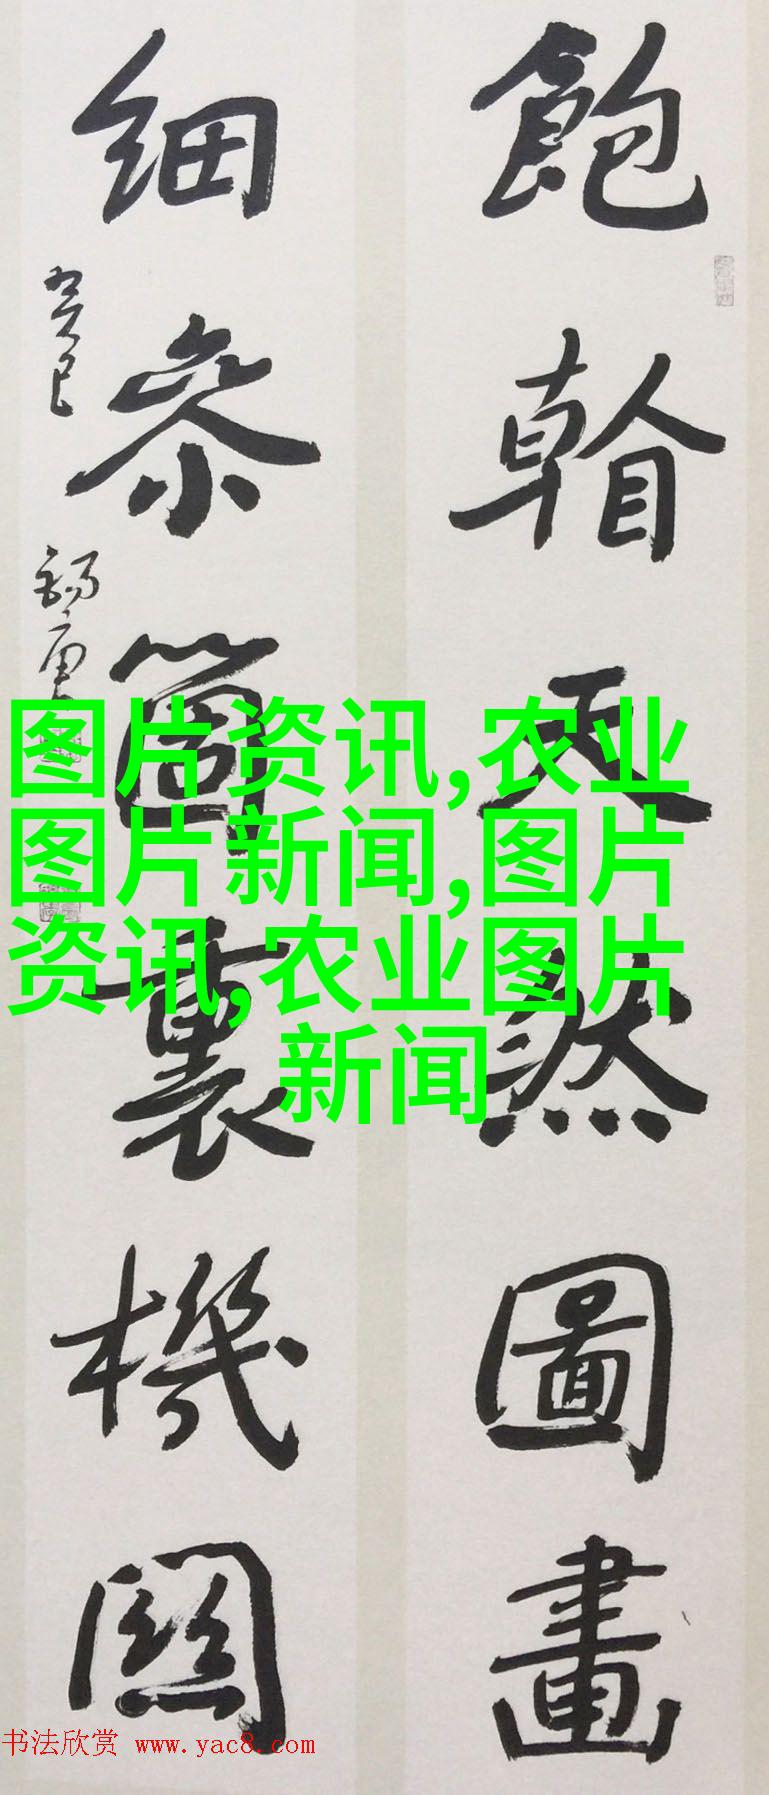 飽看天然圖畫
細參箇裏機關
癸巳
图片资讯,农业
图片新闻,图片
资讯,农业图片
新闻
书法欣赏 www.yac8.com